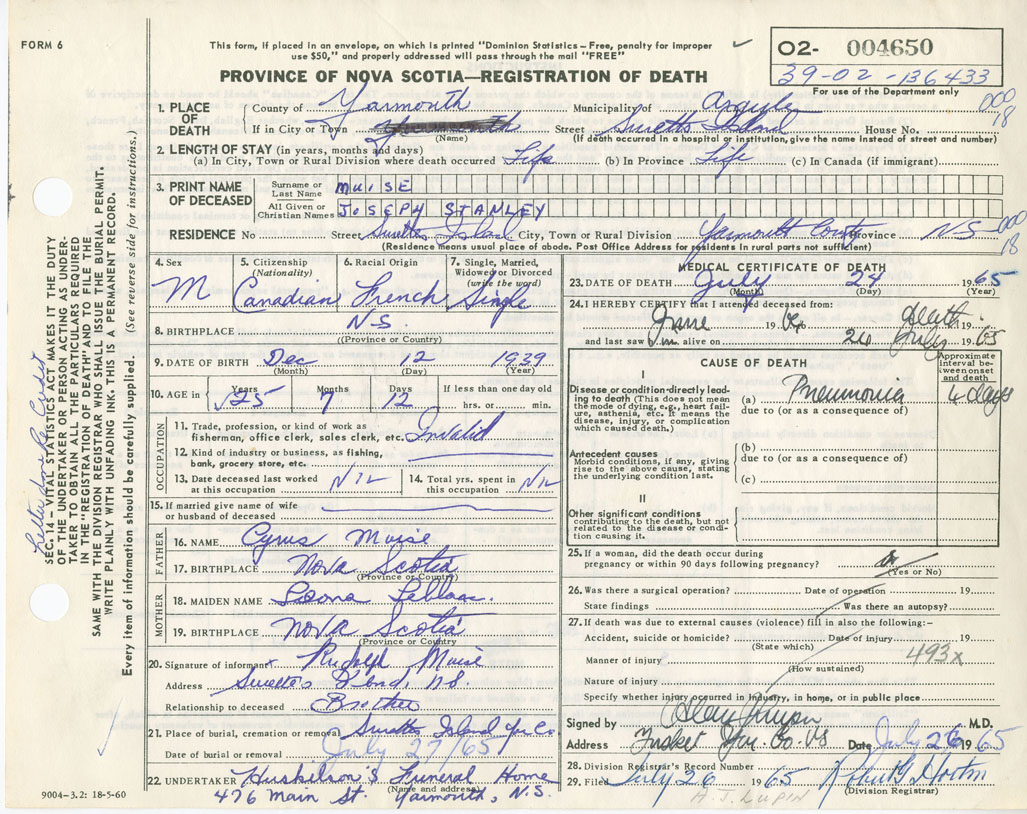 FORM 6
This form, if placed in an envelope, on which is printed "Dominion Statistics – Free, penalty for improper
use $50," and properly addressed will pass through the mail "FREE"
O2- 004650
39-02-136433
For use of the Department only
PROVINCE OF NOVA SCOTIA—REGISTRATION OF DEATH
000
18
1. PLACE OF DEATH
County of Yarmouth Municipality of Argyle
If in City or Town Street Suretts Island House No.
(Name) (If death occurred in a hospital or institution, give the name instead of street and number)
2. LENGTH OF STAY (in years, months and days)
(a) In City, Town or Rural Division where death occurred Life (b) In Province Life (c) In Canada (if immigrant)
3. PRINT NAME OF DECEASED
Surname or Last Name MUISE
All Given or Christian Names JOSEPH STANLEY
RESIDENCE No Street Suretts Island City, Town or Rural Division Yarmouth County Province N-S-
(Residence means usual place of abode. Post Office Address for residents in rural parts not sufficient)
000
18
4. Sex M
5. Citizenship (Nationality) Canadian
6. Racial Origin French
7. Single, Married, Widowed or Divorced (write the word) Single
8. BIRTHPLACE N.S.
(Province or Country)
9. DATE OF BIRTH Dec 12 1939
(Month) (Day) (Year)
10. AGE in Years 25 Months 7 Days 12 If less than one day old hrs. or min.
OCCUPATION
11. Trade, profession, or kind of work as
fisherman, office clerk, sales clerk, etc. Invalid
12. Kind of industry or business, as fishing,
bank, grocery store, etc.
13. Date deceased last worked
at this occupation NIL
14. Total yrs. spent in
this occupation NIL
15. If married give name of wife
or husband of deceased
FATHER
16. NAME Cyrus Muise
17. BIRTHPLACE Nova Scotia
(Province or Country)
MOTHER
18. MAIDEN NAME Leona Leblanc.
19. BIRTHPLACE Nova Scotia
(Province or Country
20. Signature of informant Rudolph Muise
Address Suretts Island, N.S.
Relationship to deceased Brother
21. Place of burial, cremation or removal Suretts Island Yar Co.
Date of burial or removal July 27/65
22. UNDERTAKER Huskilson's Funeral Home
(Name and address)
476 Main St. Yarmouth, N.S.
9004-3.2: 18-5-60
MEDICAL CERTIFICATE OF DEATH
23. DATE OF DEATH July 24 1965
(Month) (Day) (Year)
24. I HEREBY CERTIFY that I attended deceased from:
June 19 death 19
and last saw him alive on 24 July 1965
CAUSE OF DEATH
Approximate interval between onset and death
I
Disease or condition directly leading to death (This does not
mean the mode of dying, e.g., heart failure, asthenia, etc. It means the
disease, injury, or complication
which caused death.)
(a) Pneumonia 4 days
due to (or as a consequence of)
Antecedent causes
Morbid conditions, if any, giving
rise to the above cause, stating
the underlying condition last.
(b)
due to (or as a consequence of)
(c)
II
Other significant conditions
contributing to the death, but not
related to the disease or condition causing it.
25. If a woman, did the death occur during
pregnancy or within 90 days following pregnancy?
(Yes or No)
26. Was there a surgical operation? Date of operation 19
State findings Was there an autopsy?
27. If death was due to external causes (violence) fill in also the following:-
Accident, suicide or homicide? Date of injury 19
(State which)
Manner of injury 493x
(How sustained)
Nature of injury
Specify whether injury occurred in industry, in home, or in public place
Signed by M.D.
Address Tusket Yar. Co. NS Date July 26 1965
28. Division Registrar's Record Number
29. Filed July 26 1965
(Division Registrar)
SEC. 14 – VITAL STATISTICS ACT MAKES IT THE DUTY
OF THE UNDERTAKER OR PERSON ACTING AS UNDERTAKER TO OBTAIN ALL THE PARTICULARS REQUIRED
IN THE "REGISTRATION OF DEATH" AND TO FILE THE
SAME WITH THE DIVISION REGISTRAR WHO SHALL ISSUE THE BURIAL PERMIT.
WRITE PLAINLY WITH UNFADING INK. THIS IS A PERMANENT RECORD.
Every item of information should be carefully supplied. (See reverse side for instructions.)